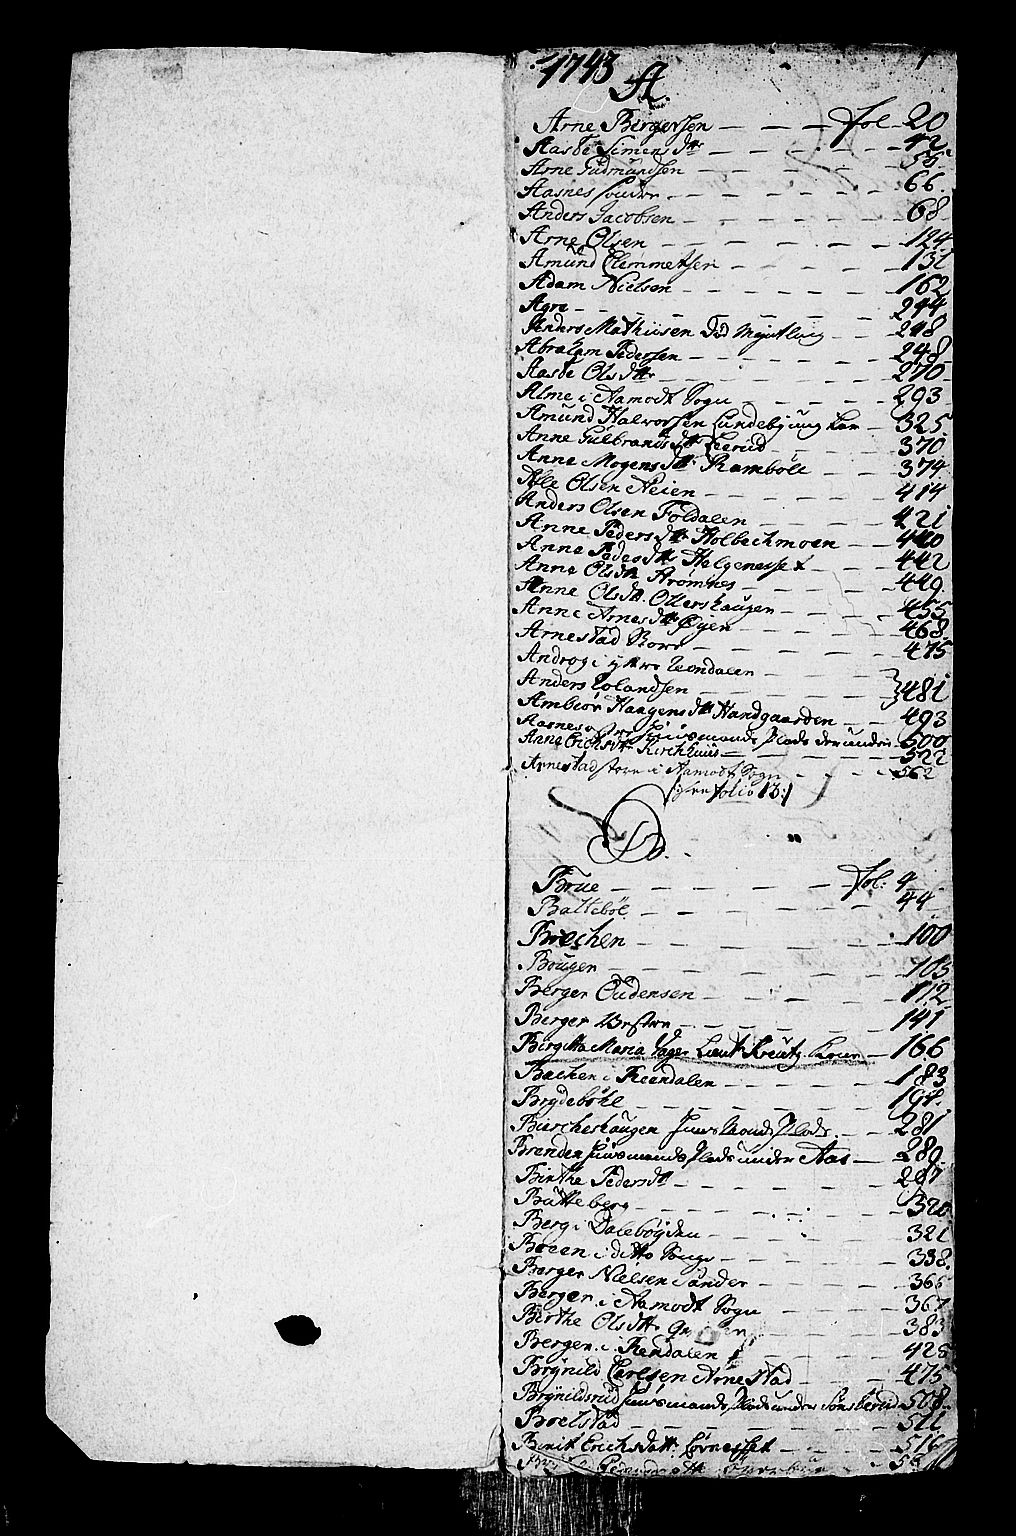 1743
A.
Arne Birgersen — — — fol — 20
Aaste Simens dtr — — — 42
Arne Gudmundsen — — — 55
Aasnes — — — 66
Anders Jacobsen — — — 68
Arne Olsen — — — 124
Amund Clemmetsen — — — 131
Adam Nielsen — — — 162
Agre — — — 244
Anders Mathiesen — — — 248
Abraham Pedersen — — — 248
Aaste Olsdtr — — — 270
Alme i Aamodt Sogn — — — 293
Amund Halvorsen Lundebyung — 325
Anne Gulbrands dtr — — — 370
Anne Mogens dtr Ramböll — — — 374
Olsen Neien — — — 414
Anders Olsen Foldalen — — — 421
Anne Peders dtr Holbechmoen — — 440
Anne Peders dtr Helgenesset — — — 442
Anne Olsdtr Strømnes — — — 449
Anne Olsdtr. Ottershaugen — — — 455
Anne Arnes dtr Øyen — — — 468
Arnestad — — — 475
Androg i yttre Rendalen — — —
Anders Rolandsen — — — } 481
Ambiör Haagens dtr Handgaarden — — 493
Aasnes Huusmands Plads — 500
Anne Erichsdtr Kirchhuus — — — 522
Arnestad store i Aamodt Sogn — — — 562
folio 131
B.
Brue — — — fol: 4
Balteböl — — — 44
Brochen — — — 100
Bruger — — — 103
Berger Oudensen — — — 112
Berger Vestre — — — 141
Birgitta Maria Lieut Kreutz — 166
Bachen i Rendalen — — — 183
Brydeböhl — — — 194
Bircheshaugen Huusmands Plads — — — 281
Brenden Huusmands Plads under Aas — 289
Birthe Pedersdtr — — — 297
Butteberg — — — 320
Berg i Dalebøyden — — — 321
Breen i ditto Sogn — — — 338
Berger Nielsen Sander — — — 366
Bergen i Aamodt Sogn — — — 367
Birthe Olsdtr — — — 383
Bergen i Rendalen — — — 425
Brynild Carlsen Arnestad — — — 475
Brynildsrud Huusmands Plads under — 508
Boelstad — — — 511
Berit Erichsdatt: Lørnesset — — — 516